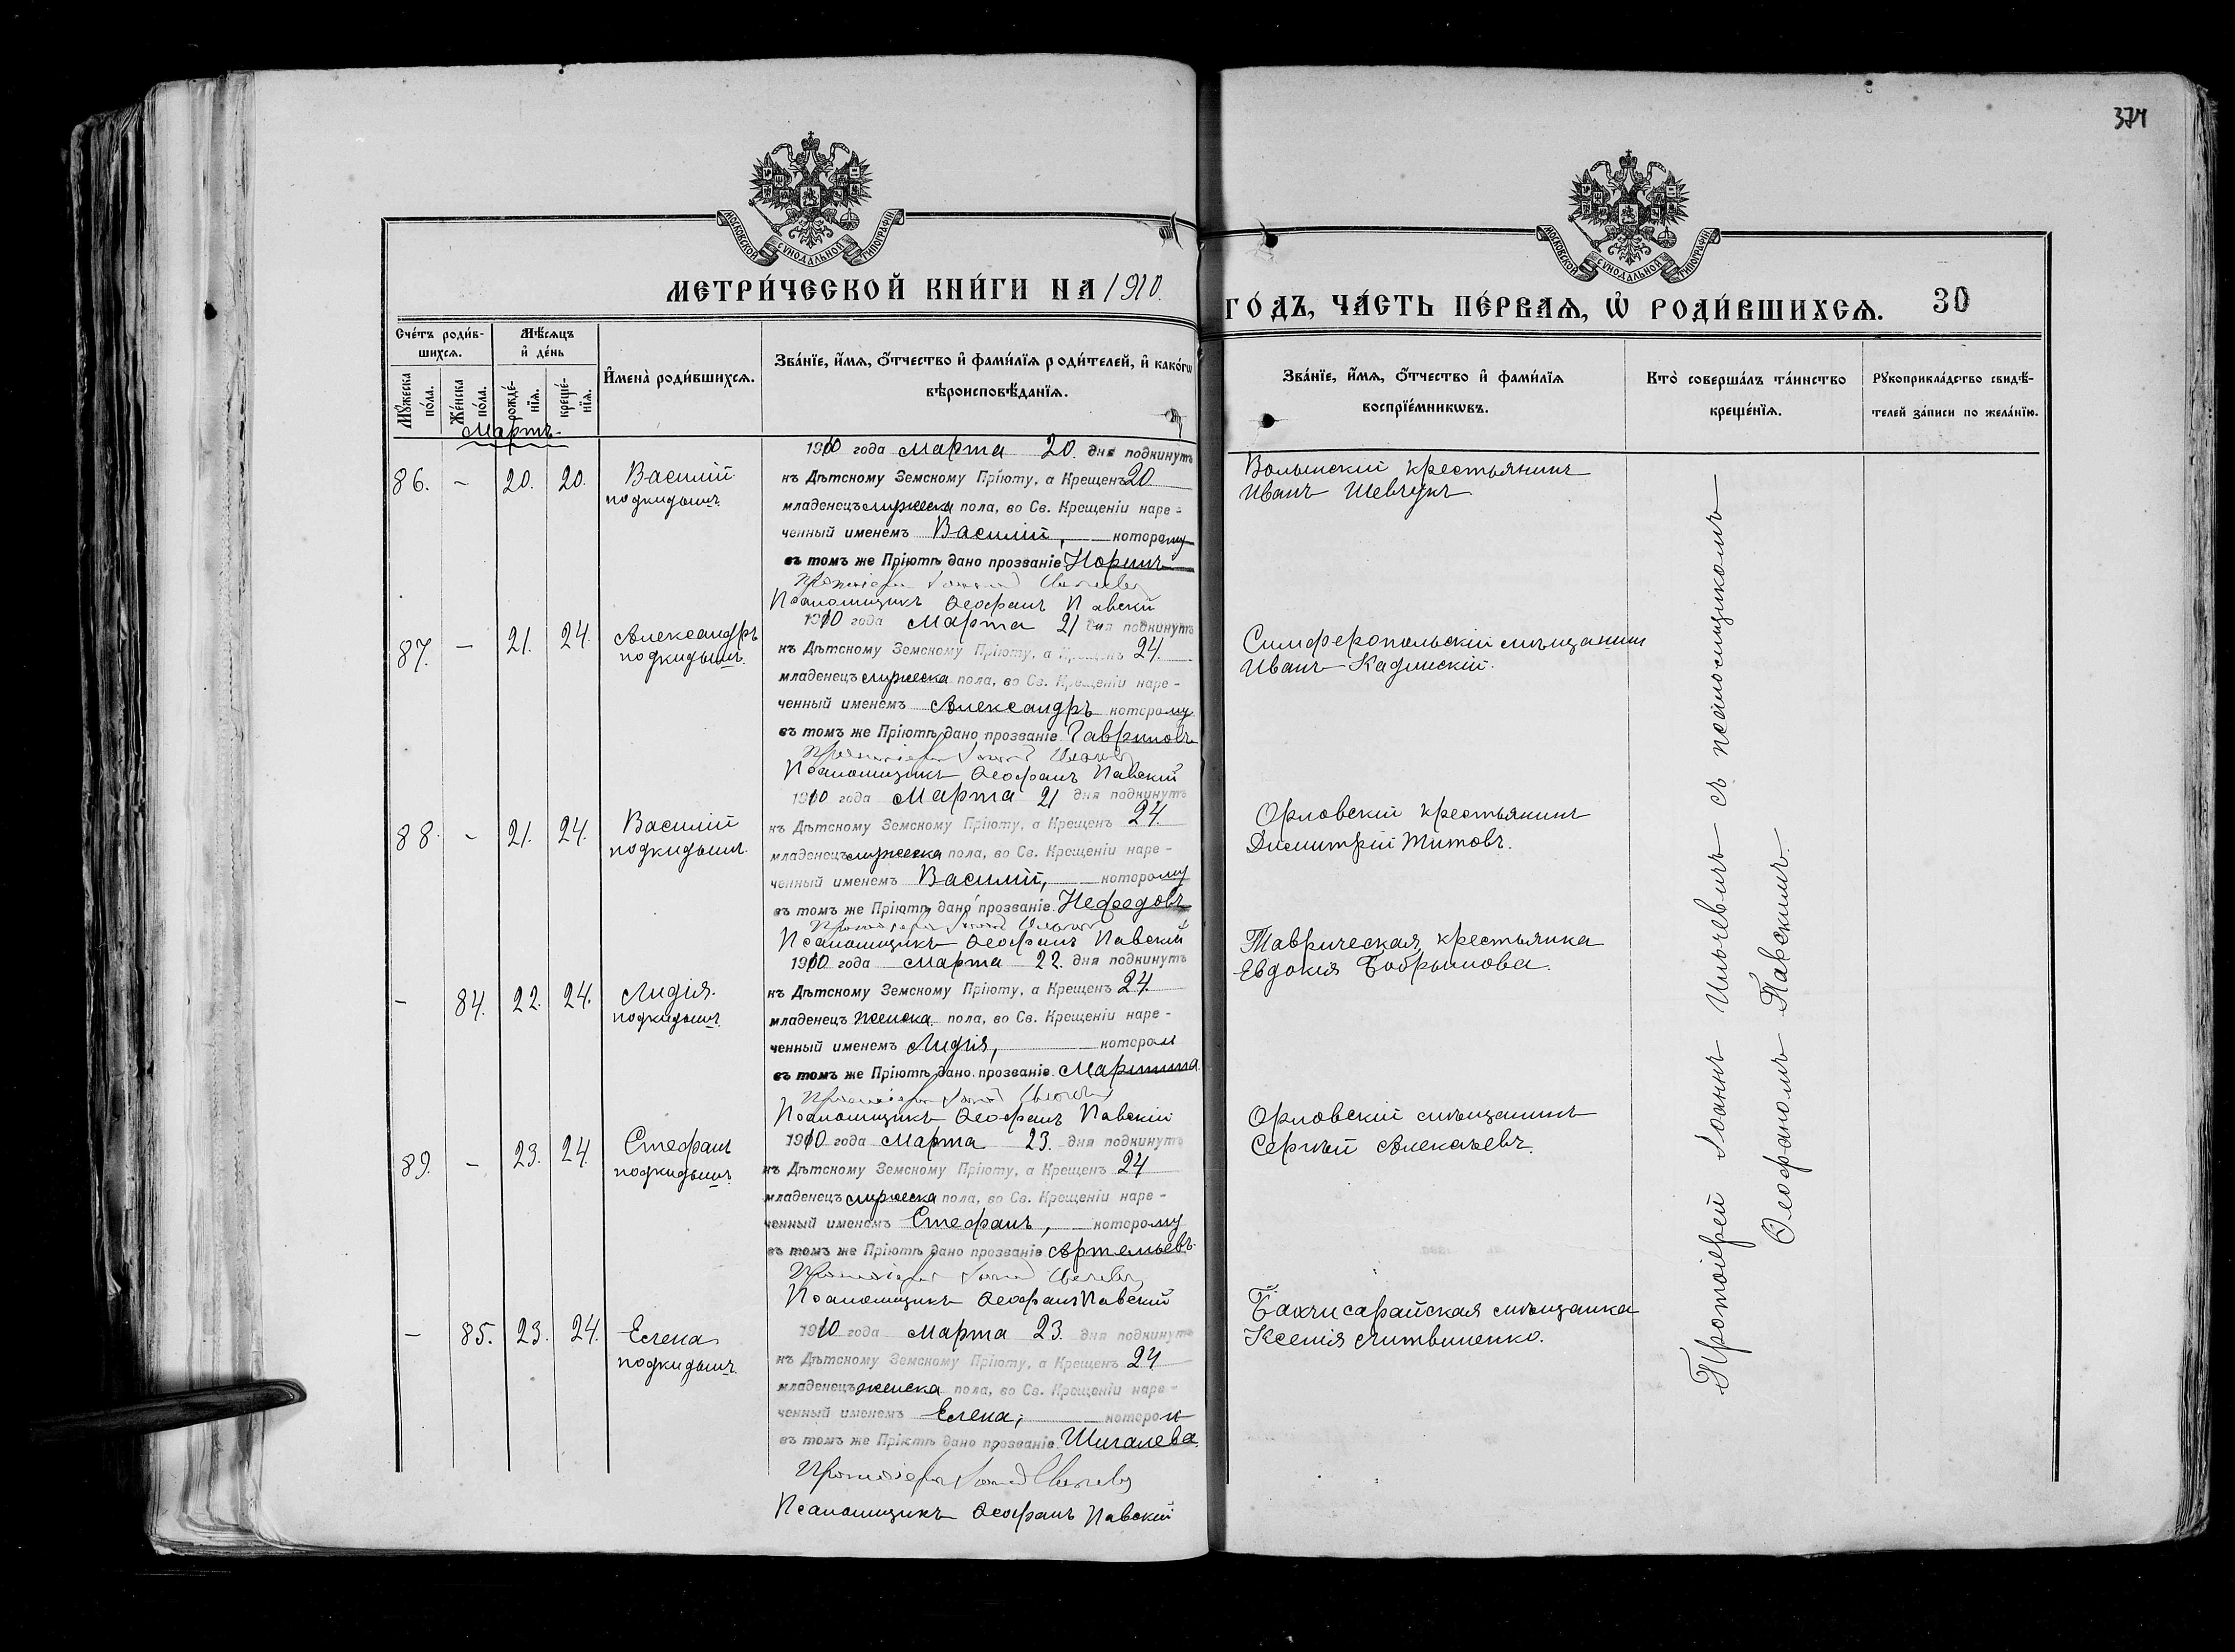 374
МОСКОВСКОЙ СѴНОДАЛЬНОЙ ТИПОГРАФІИ
МОСКОВСКОЙ СѴНОДАЛЬНОЙ ТИПОГРАФІИ
МЕТРИ́ЧЕСКОЙ КНИ́ГИ НА 1910.
ГО́ДЪ, ЧА́СТЬ ПЕ́РВАѦ, Ѡ҆ РОДИ́ВШИХСѦ. 30
Сче́тъ роди́в-
шихсѧ.
Мѣ́сѧцъ
и҆ де́нь
Мꙋ́жеска по́ла.
Же́нска по́ла.
рожде́-нїѧ.
креще́-нїѧ.
И҆мена̀ роди́вшихсѧ.
Зва́нїе, и҆́мѧ, ѻ҆́тчество и҆ фами́лїѧ роди́телей, и҆ како́гѡ
вѣроисповѣ́данїѧ.
Зва́нїе, и҆́мѧ, ѻ҆́тчество и҆ фами́лїѧ
воспрїе́мникѡвъ.
Кто̀ соверша́лъ та́инство
креще́нїѧ.
Рꙋкоприкла́дство свидѣ́-
телей за́писи по жела́нїю.
Мартъ
86. - 20. 20. Василій
подкидышъ.
1910 года Марта 20. дня подкинутъ
къ Дѣтскому Земскому Пріюту, а Крещенъ 20
младенецъ мужеска пола, во Св. Крещеніи наре-
ченный именемъ Василій, которому
въ томъ же Пріютѣ дано прозваніе Норинъ
Протоіерей
Псаломщикъ Ѳеофанъ Павскій
Волынскій крестьянинъ
Иванъ Шевчукъ
87. - 21. 24. Александръ
подкидышъ.
1910 года Марта 21 дня подкинутъ
къ Дѣтскому Земскому Пріюту, а Крещенъ 24.
младенецъ мужеска пола, во Св. Крещеніи наре-
ченный именемъ Александръ которому
въ томъ же Пріютѣ дано прозваніе Гавриловъ
Протоіерей
Псаломщикъ Ѳеофанъ Павскій
Симферопольскій мѣщанинъ
Иванъ Кадинскій.
88. - 21. 24. Василій
подкидышъ.
1910 года Марта 21 дня подкинутъ
къ Дѣтскому Земскому Пріюту, а Крещенъ 24.
младенецъ мужеска пола, во Св. Крещеніи наре-
ченный именемъ Василій, которому
въ томъ же Пріютѣ дано прозваніе Нефедовъ
Протоіерей
Псаломщикъ Ѳеофанъ Павскій
Орловскій крестьянинъ
Димитрій Титовъ.
- 84. 22. 24. Лидія.
подкидышъ.
1910 года Марта 22. дня подкинутъ
къ Дѣтскому Земскому Пріюту, а Крещенъ 24.
младенецъ женска пола, во Св. Крещеніи наре-
ченный именемъ Лидія, которой
въ томъ же Пріютѣ дано прозваніе Мартина
Протоіерей
Псаломщикъ Ѳеофанъ Павскій
Таврическая крестьянка
Евдокія Бобрышова.
89. - 23. 24. Стефанъ
подкидышъ.
1910 года Марта 23. дня подкинутъ
къ Дѣтскому Земскому Пріюту, а Крещенъ 24
младенецъ мужеска пола, во Св. Крещеніи наре-
ченный именемъ Стефанъ, которому
въ томъ же Пріютѣ дано прозваніе Артемьевъ.
Протоіерей
Псаломщикъ Ѳеофанъ Павскій
Орловскій мѣщанинъ
Сергѣй Алексѣевъ.
- 85. 23. 24. Елена
подкидышъ.
1910 года Марта 23. дня подкинутъ
къ Дѣтскому Земскому Пріюту, а Крещенъ 24
младенецъ женска пола, во Св. Крещеніи наре-
ченный именемъ Елена, которой
въ томъ же Пріютѣ дано прозваніе Шигалева.
Протоіерей
Псаломщикъ Ѳеофанъ Павскій
Бахчисарайская мѣщанка
Ксенія Литвиненко.
Протоіерей Іоаннъ Ильчевичъ съ псаломщикомъ
Ѳеофаномъ Павскимъ.